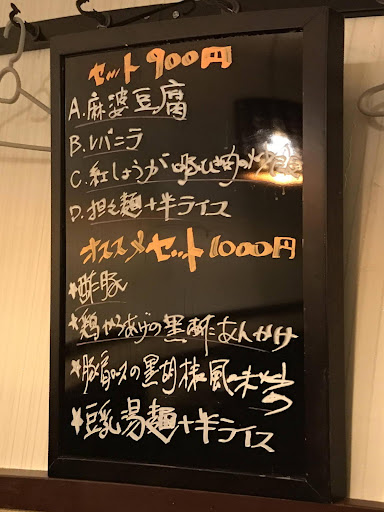 セット900円
A.麻婆豆腐
B.レバニラ
C.紅しょうが
D.担々麺+半ライス
オススメセット1000円
*酢豚
*鶏からあげの黒酢あんかけ
*豚肩ロースの黒胡椒風味
*豆乳湯麺+半ライス